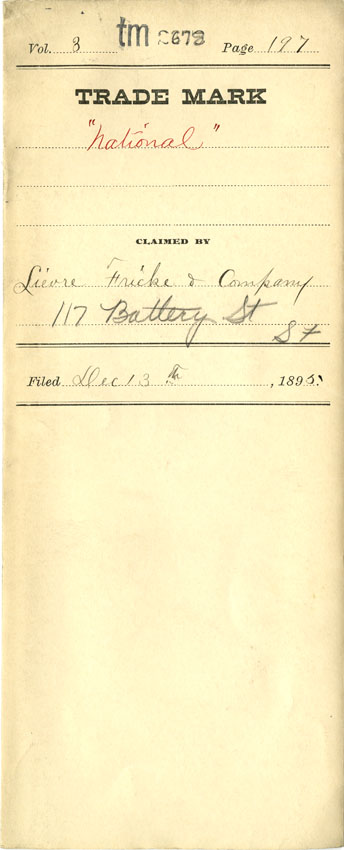 Vol. 3 tm 2678 Page 197
TRADE MARK
"National"
CLAIMED BY
Lievre Fricke & Company
117 Battery St
SF
Filed Dec 13th, 1895.